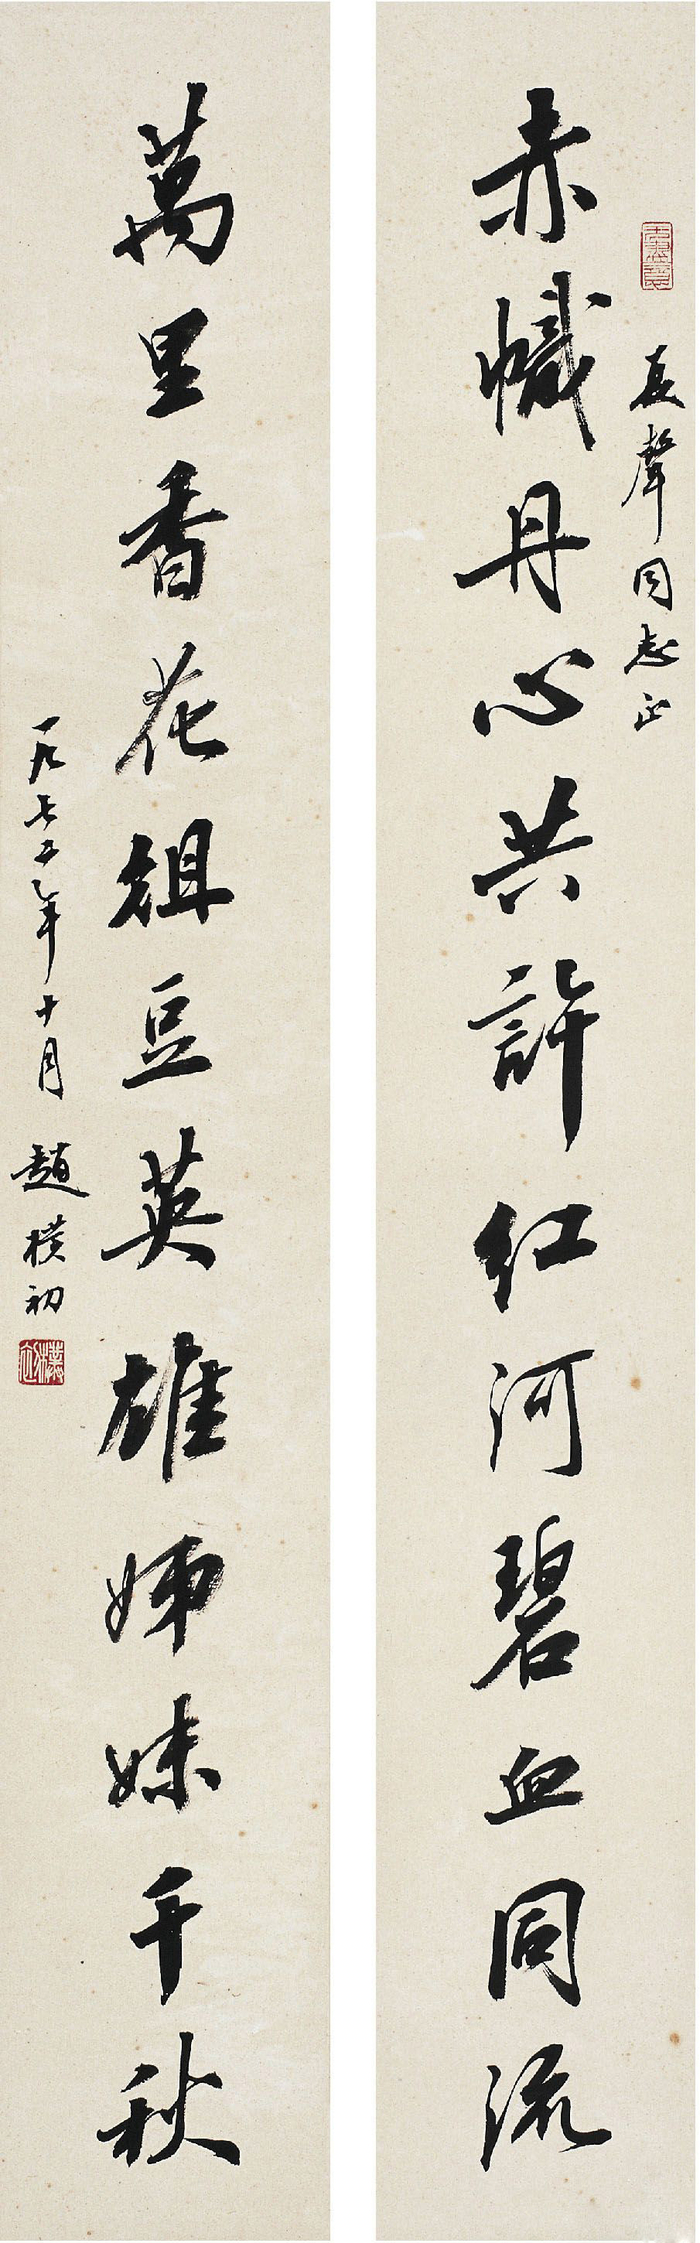 赤幟丹心共許紅河碧血同流
聲同志正
萬里香花俎豆英雄姊妹千秋
一九七五年十月 趙樸初